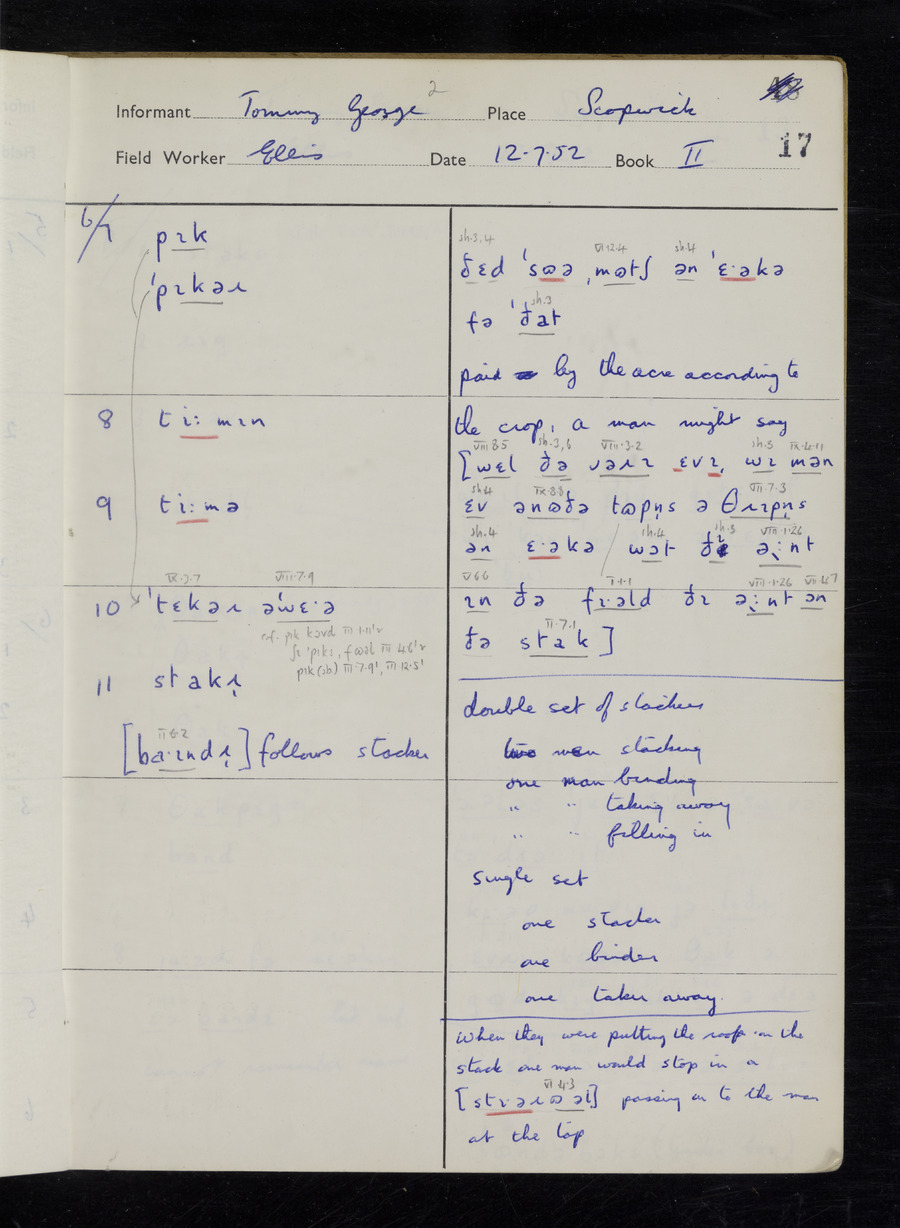 2
Informant Tommy George Place Scopwick
17
Field Worker Ellis Date 12-7-52 Book II
6/7 pɪk
'pɪkəɹ
8 ti:mɪn
9 ti:mə
IX.3.7 VIII.7.9
10 'tɛkəɹ ə'wɛ·ə
cf. pik
11 stakɹ̩
II 6.2
[ba·ɪndɹ̩] follows stacker
sh.3,4 VI.12.4 sh.4
ðɛd 'sɷə ˌmɷtʃ ən 'ɛ·əkə
sh.3
fə 'ðat
paid by the acre according to
the crop, a man might say
VIII 8.5 sh.3,6 VIII.3.2 sh.3 IX.4.11
[wɛl ðə vəɹɪ ɛvɪ, wɪ mən
sh.4 IX.8.8 VII.7.3
ɛv ənɷðə tɷpn̩s ə θɹɪpn̩s
sh.4 sh.4 sh.3 VIII.1.26
ən ɛ·əkə / wɔt ðɪ ə:nt
V.6.6 I.1.1 VIII.1.26 VII.4.7
ɪn ðə fɪ·əld ðɪ ə:nt ən
II.7.1
ðə stak]
double set of stackers
two men stacking
one man binding
" " taking away
" " filling in
Single set
one stacker
one binder
one taker away.
When they were putting the roof on the
stack one man would stop in a
VI 4.3
[stɪ·əɹɷəl] passing on to the man
at the top